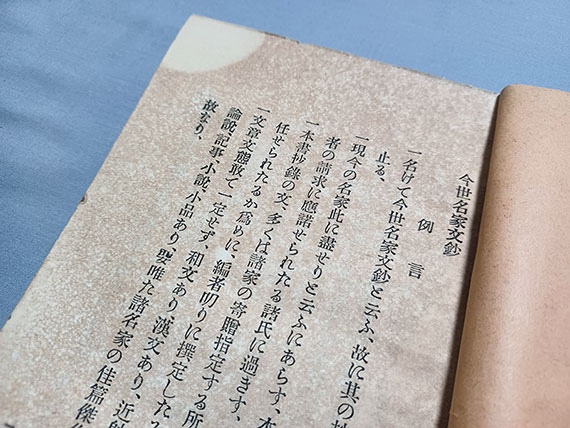 今世名家文鈔
例言
一名けて今世名家文鈔と云ふ、故に其の
止る、
一現今の名家此に盡せりと云ふにあらす、本
者の請求に應諾せられたる諸氏に過きす、
一本書抄錄の文、多くは諸家の寄贈指定する所
任せられたるか爲めに、編者叨りに撰定した
一文章文態敢て一定せず、和文あり、漢文あり、近
論說、記事、小說、小品あり、要唯た諸名家の佳篇傑
故なり、